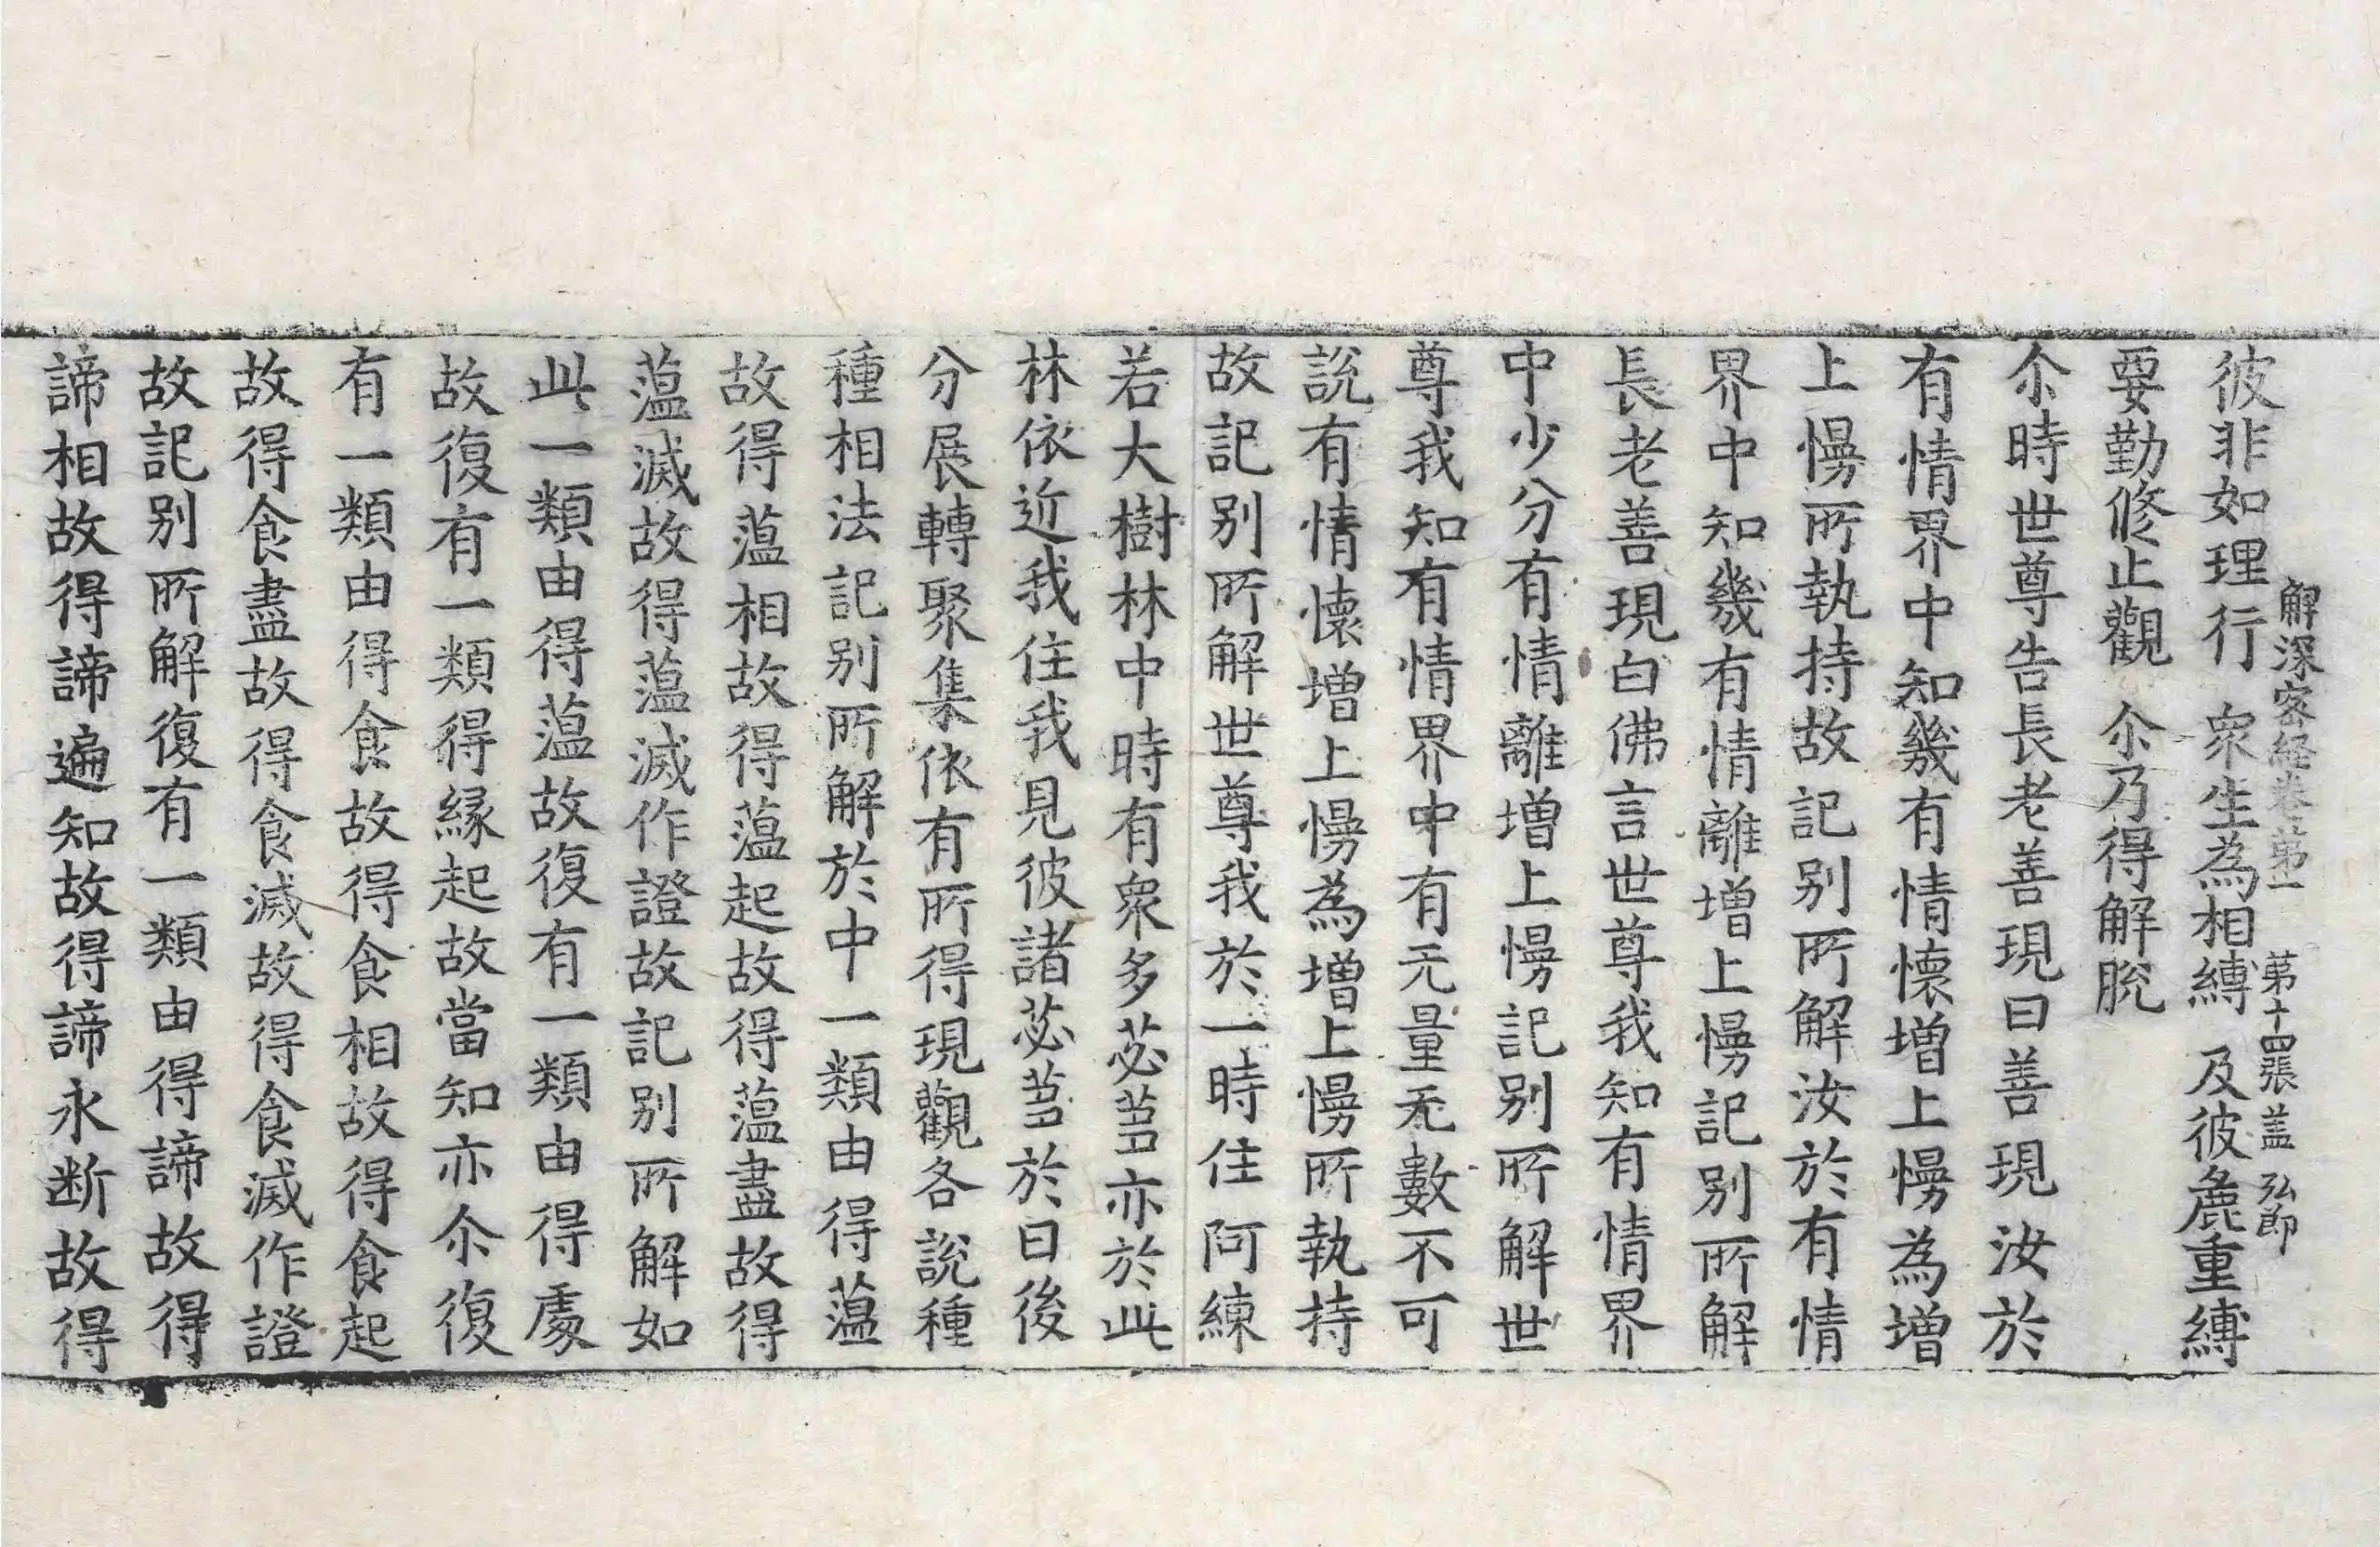 解深密経巻第一 第十四張 盖 弘郎
彼非如理行 衆生為相縛 及彼麁重縛
要勤修止觀 尒乃得解脫
尒時世尊告長老善現曰善現汝於
有情界中知幾有情懷增上慢為增
上慢所執持故記別所解汝於有情
界中知幾有情離增上慢記別所解
長老善現白佛言世尊我知有情界
中少分有情離增上慢記別所解世
尊我知有情界中有无量无數不可
說有情懷增上慢為增上慢所執持
故記別所解世尊我於一時住阿練
若大樹林中時有衆多苾芻亦於此
林依近我住我見彼諸苾芻於日後
分展轉聚集依有所得現觀各說種
種相法記別所解於中一類由得薀
故得薀相故得薀起故得薀盡故得
薀滅故得薀滅作證故記別所解如
此一類由得薀故復有一類由得處
故復有一類得緣起故當知亦尒復
有一類由得食故得食相故得食起
故得食盡故得食滅故得食滅作證
故記別所解復有一類由得諦故得
諦相故得諦遍知故得諦永断故得